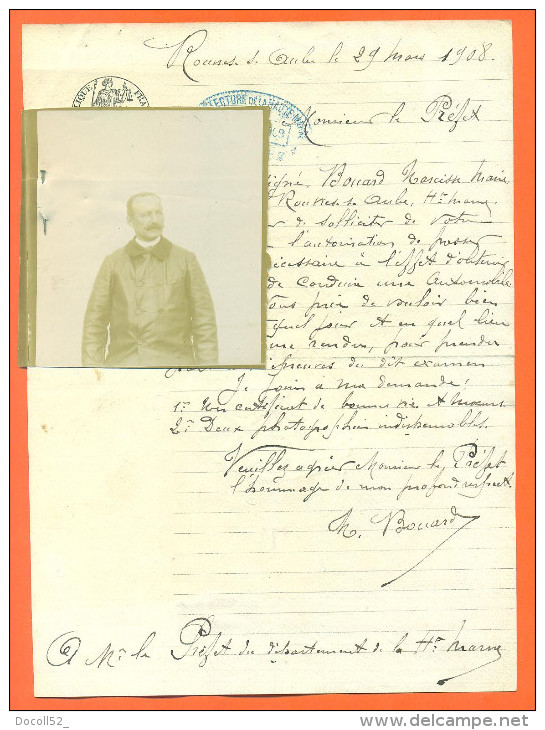 Rouvres s. Aube le 29 mars 1908.
PREFECTURE DE LA HAUTE MARNE
Monsieur le Préfet
Bouard Narcisse Maire
Rouvres s. Aube, Hte Marne
de solliciter de votre
l'autorisation de passer
nécessaire à l'effet d'obtenir
de conduire une Automobile
vous prie de vouloir bien
quel jour et en quel lieu
me rendre, pour prendre
du dit examen
Je joins à ma demande:
1° Un certificat de bonnes vie et Moeurs
2° Deux photographies indispensables.
Veuillez agréer Monsieur le Préfet
l'hommage de mon profond respect.
N. Bouard
A Mr le Préfet du département de la Hte Marne
Docoll52_
www.delcampe.net